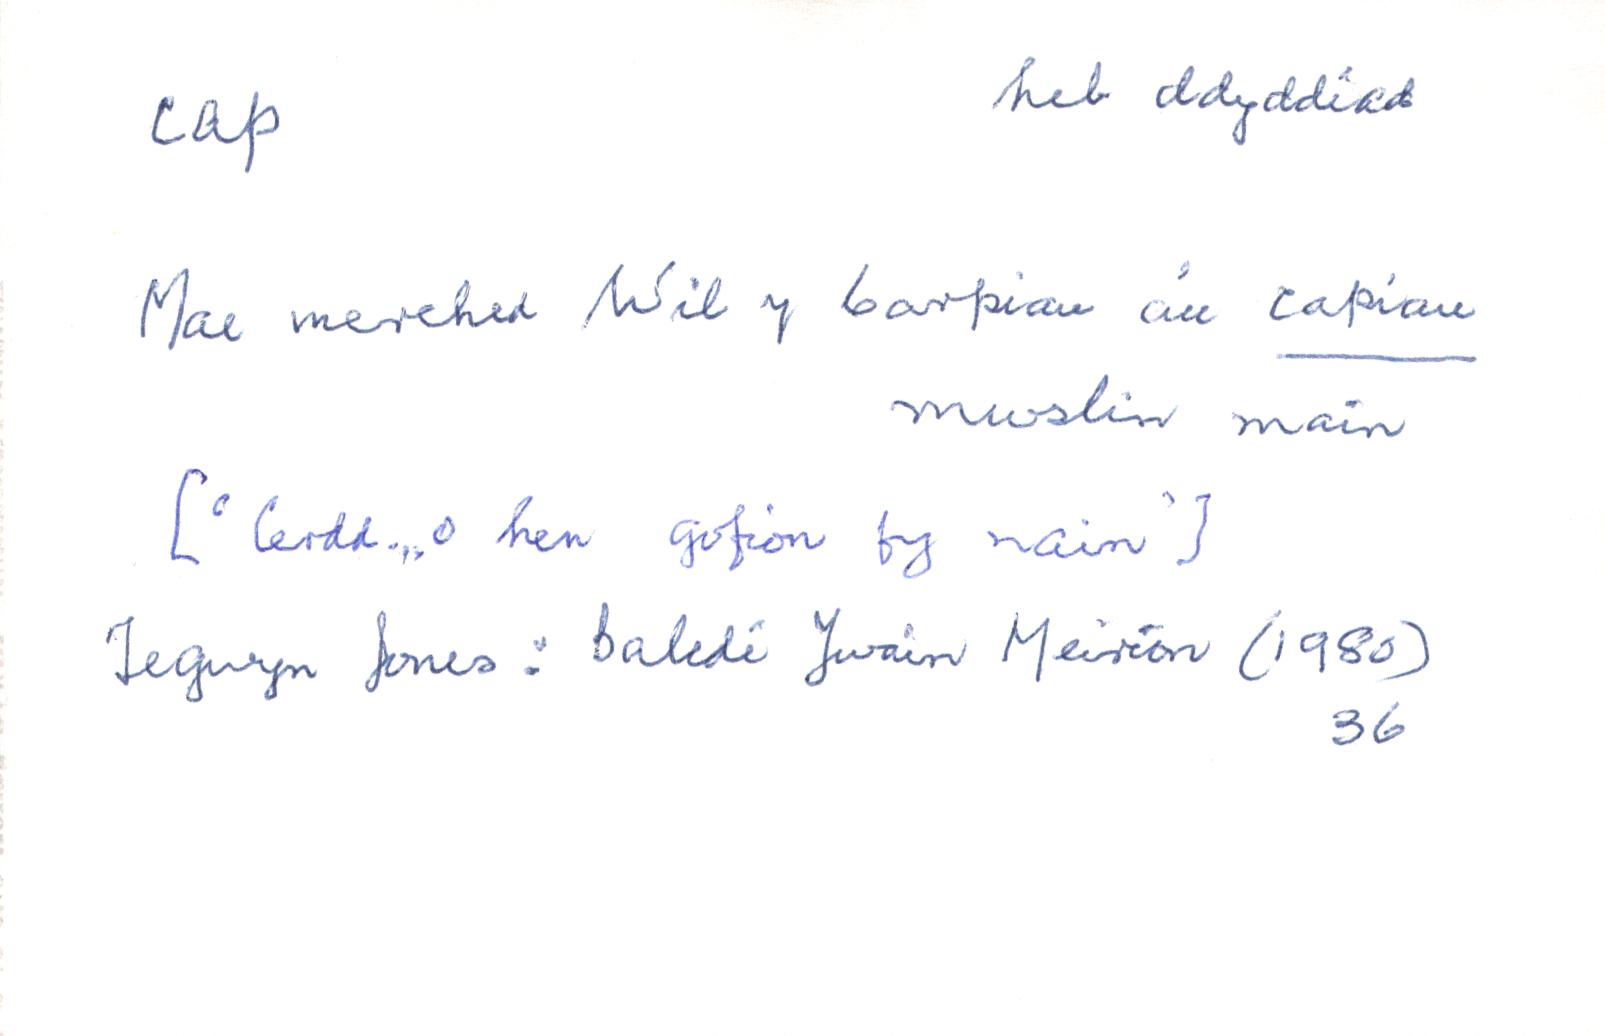 cap heb ddyddiad
Mae merched Wil y barpiau a'u capiau
mwslin main
['Cerdd... o hen gofion fy nain']
Tegwyn Jones: Baledi Ywain Meirion (1980)
36